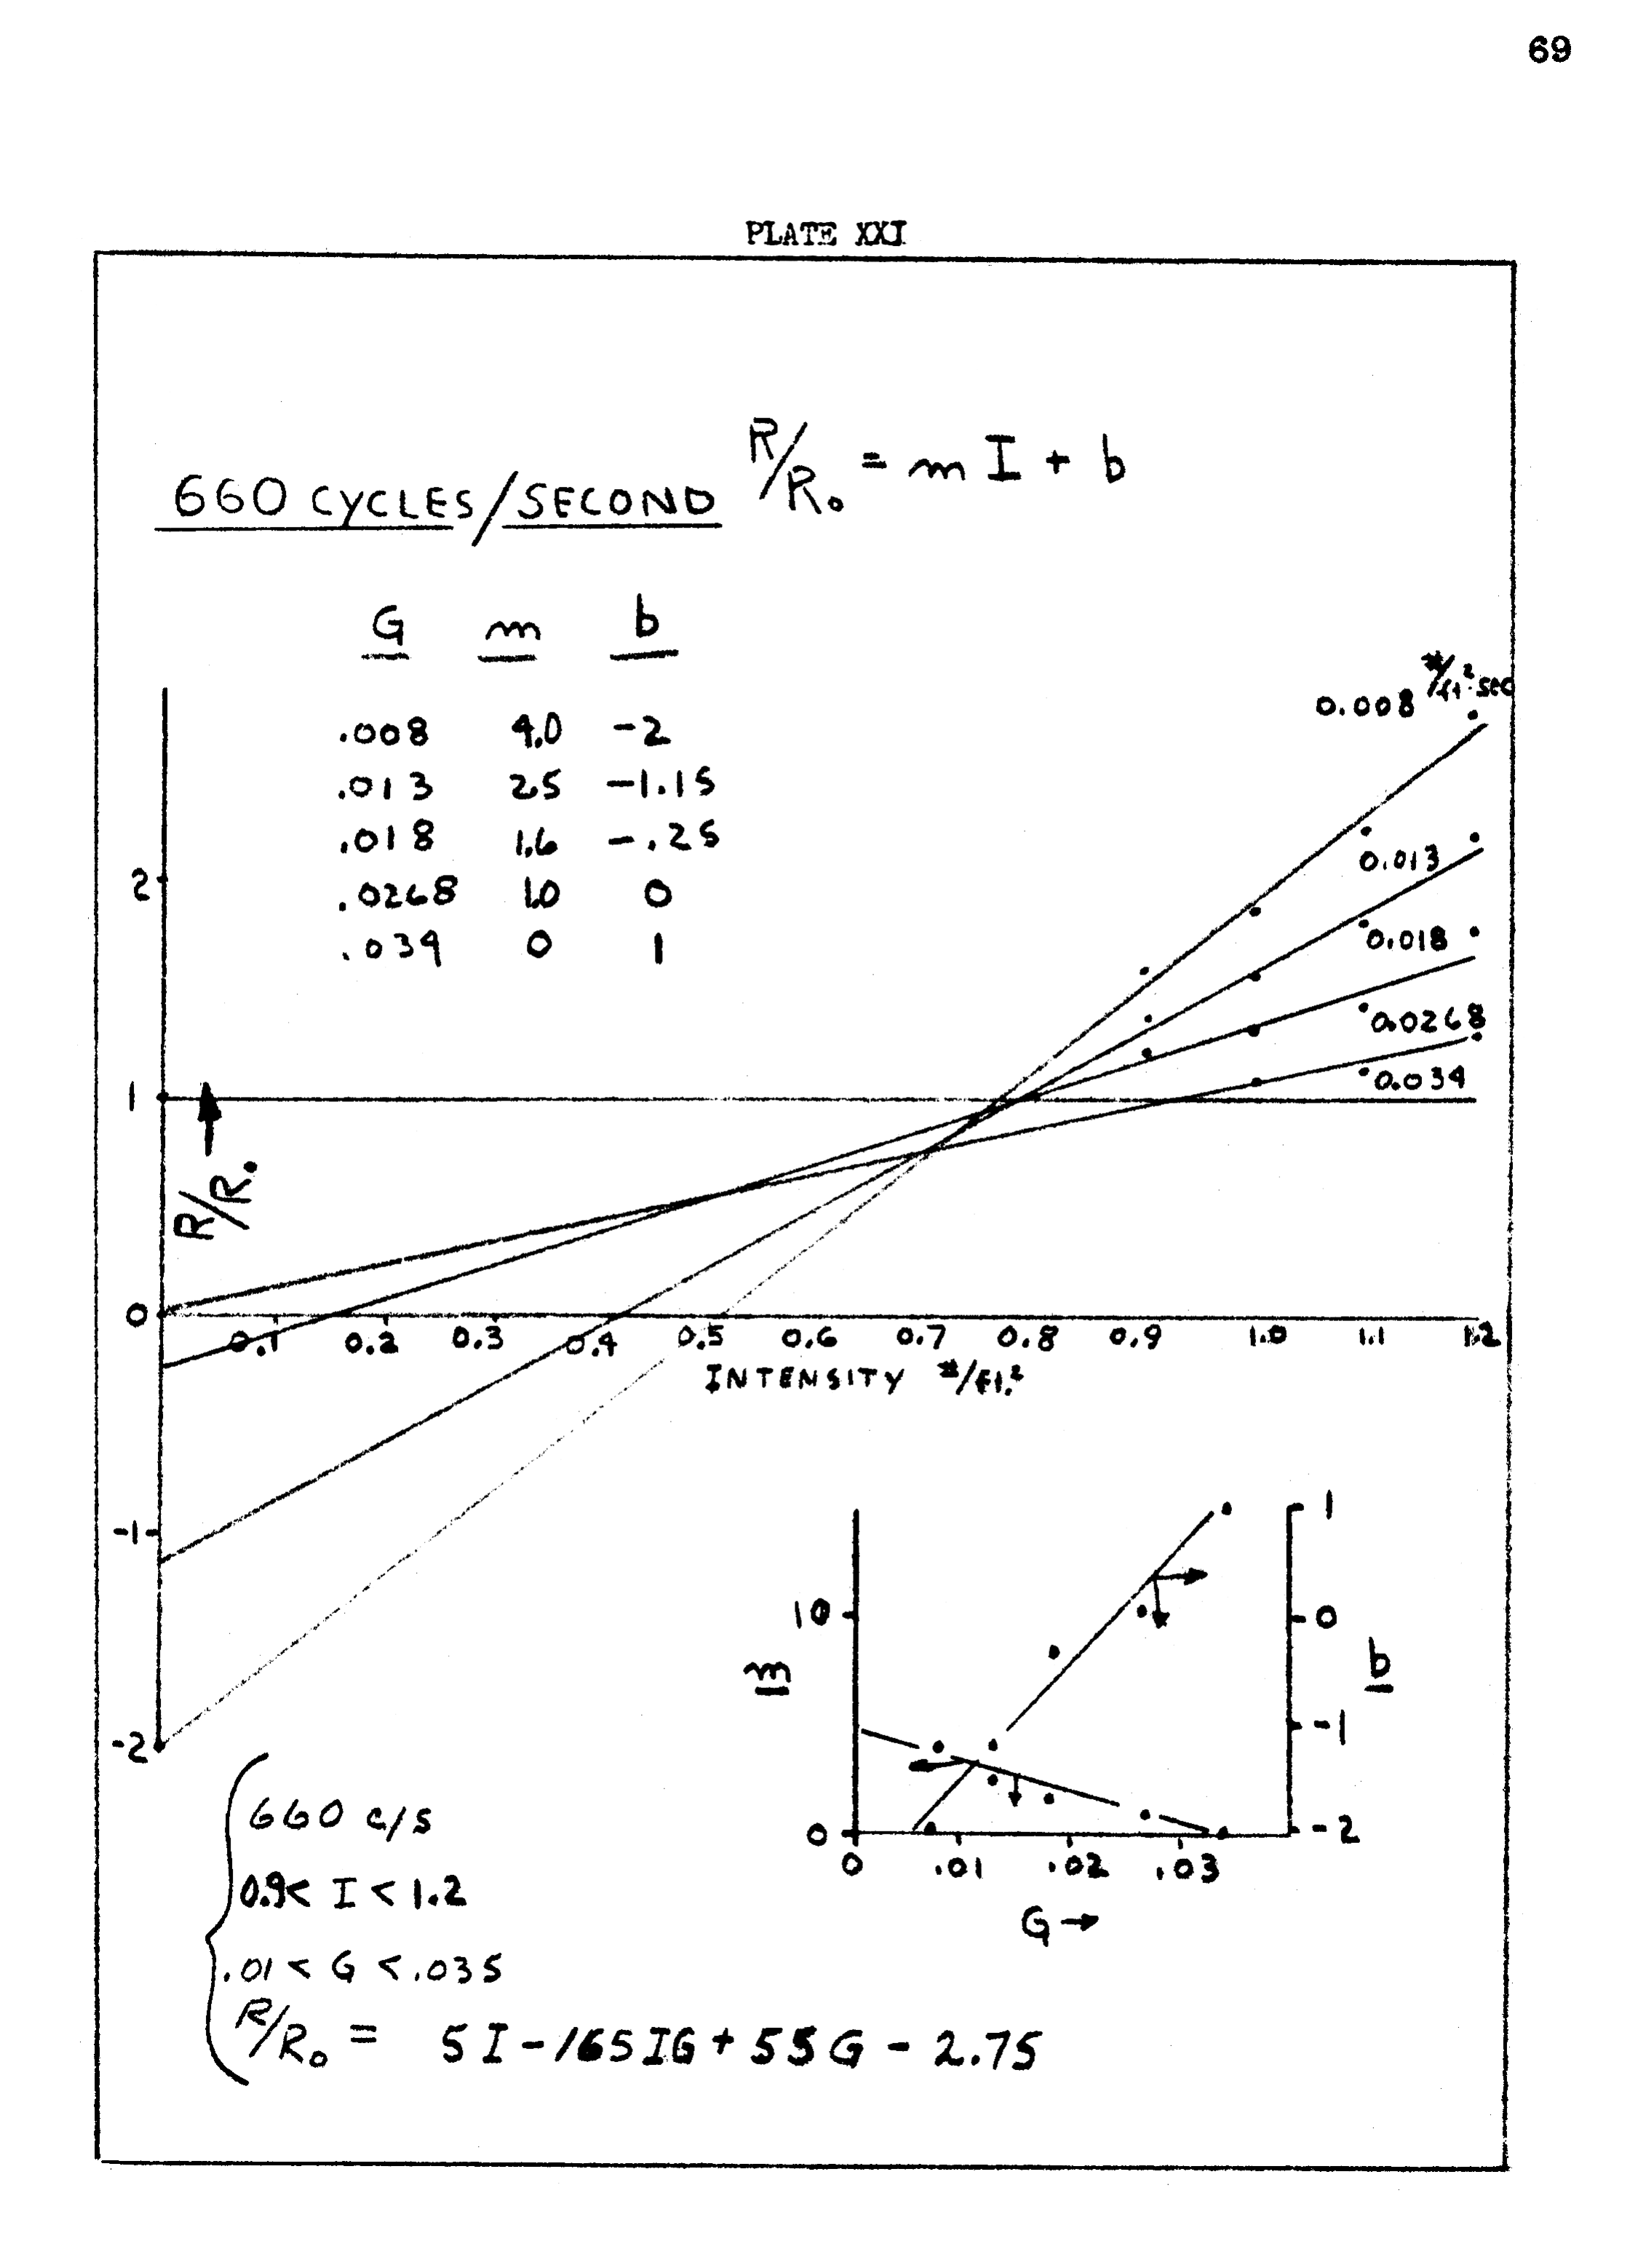 69
PLATE XXI
660 CYCLES/SECOND R/R₀ = m I + b
G m b
.008 4.0 -2
.013 2.5 -1.15
.018 1.6 -.25
.0268 1.0 0
.034 0 1
0.008 #/ft²·sec
0.013
0.018
0.0268
0.034
2
1
0
-1
-2
R/R₀
0.1 0.2 0.3 0.4 0.5 0.6 0.7 0.8 0.9 1.0 1.1 1.2
INTENSITY #/ft.²
10
0
m
1
0
-1
-2
b
0 .01 .02 .03
G →
660 c/s
0.9 < I < 1.2
.01 < G < .035
R/R₀ = 5 I - 165 IG + 55 G - 2.75